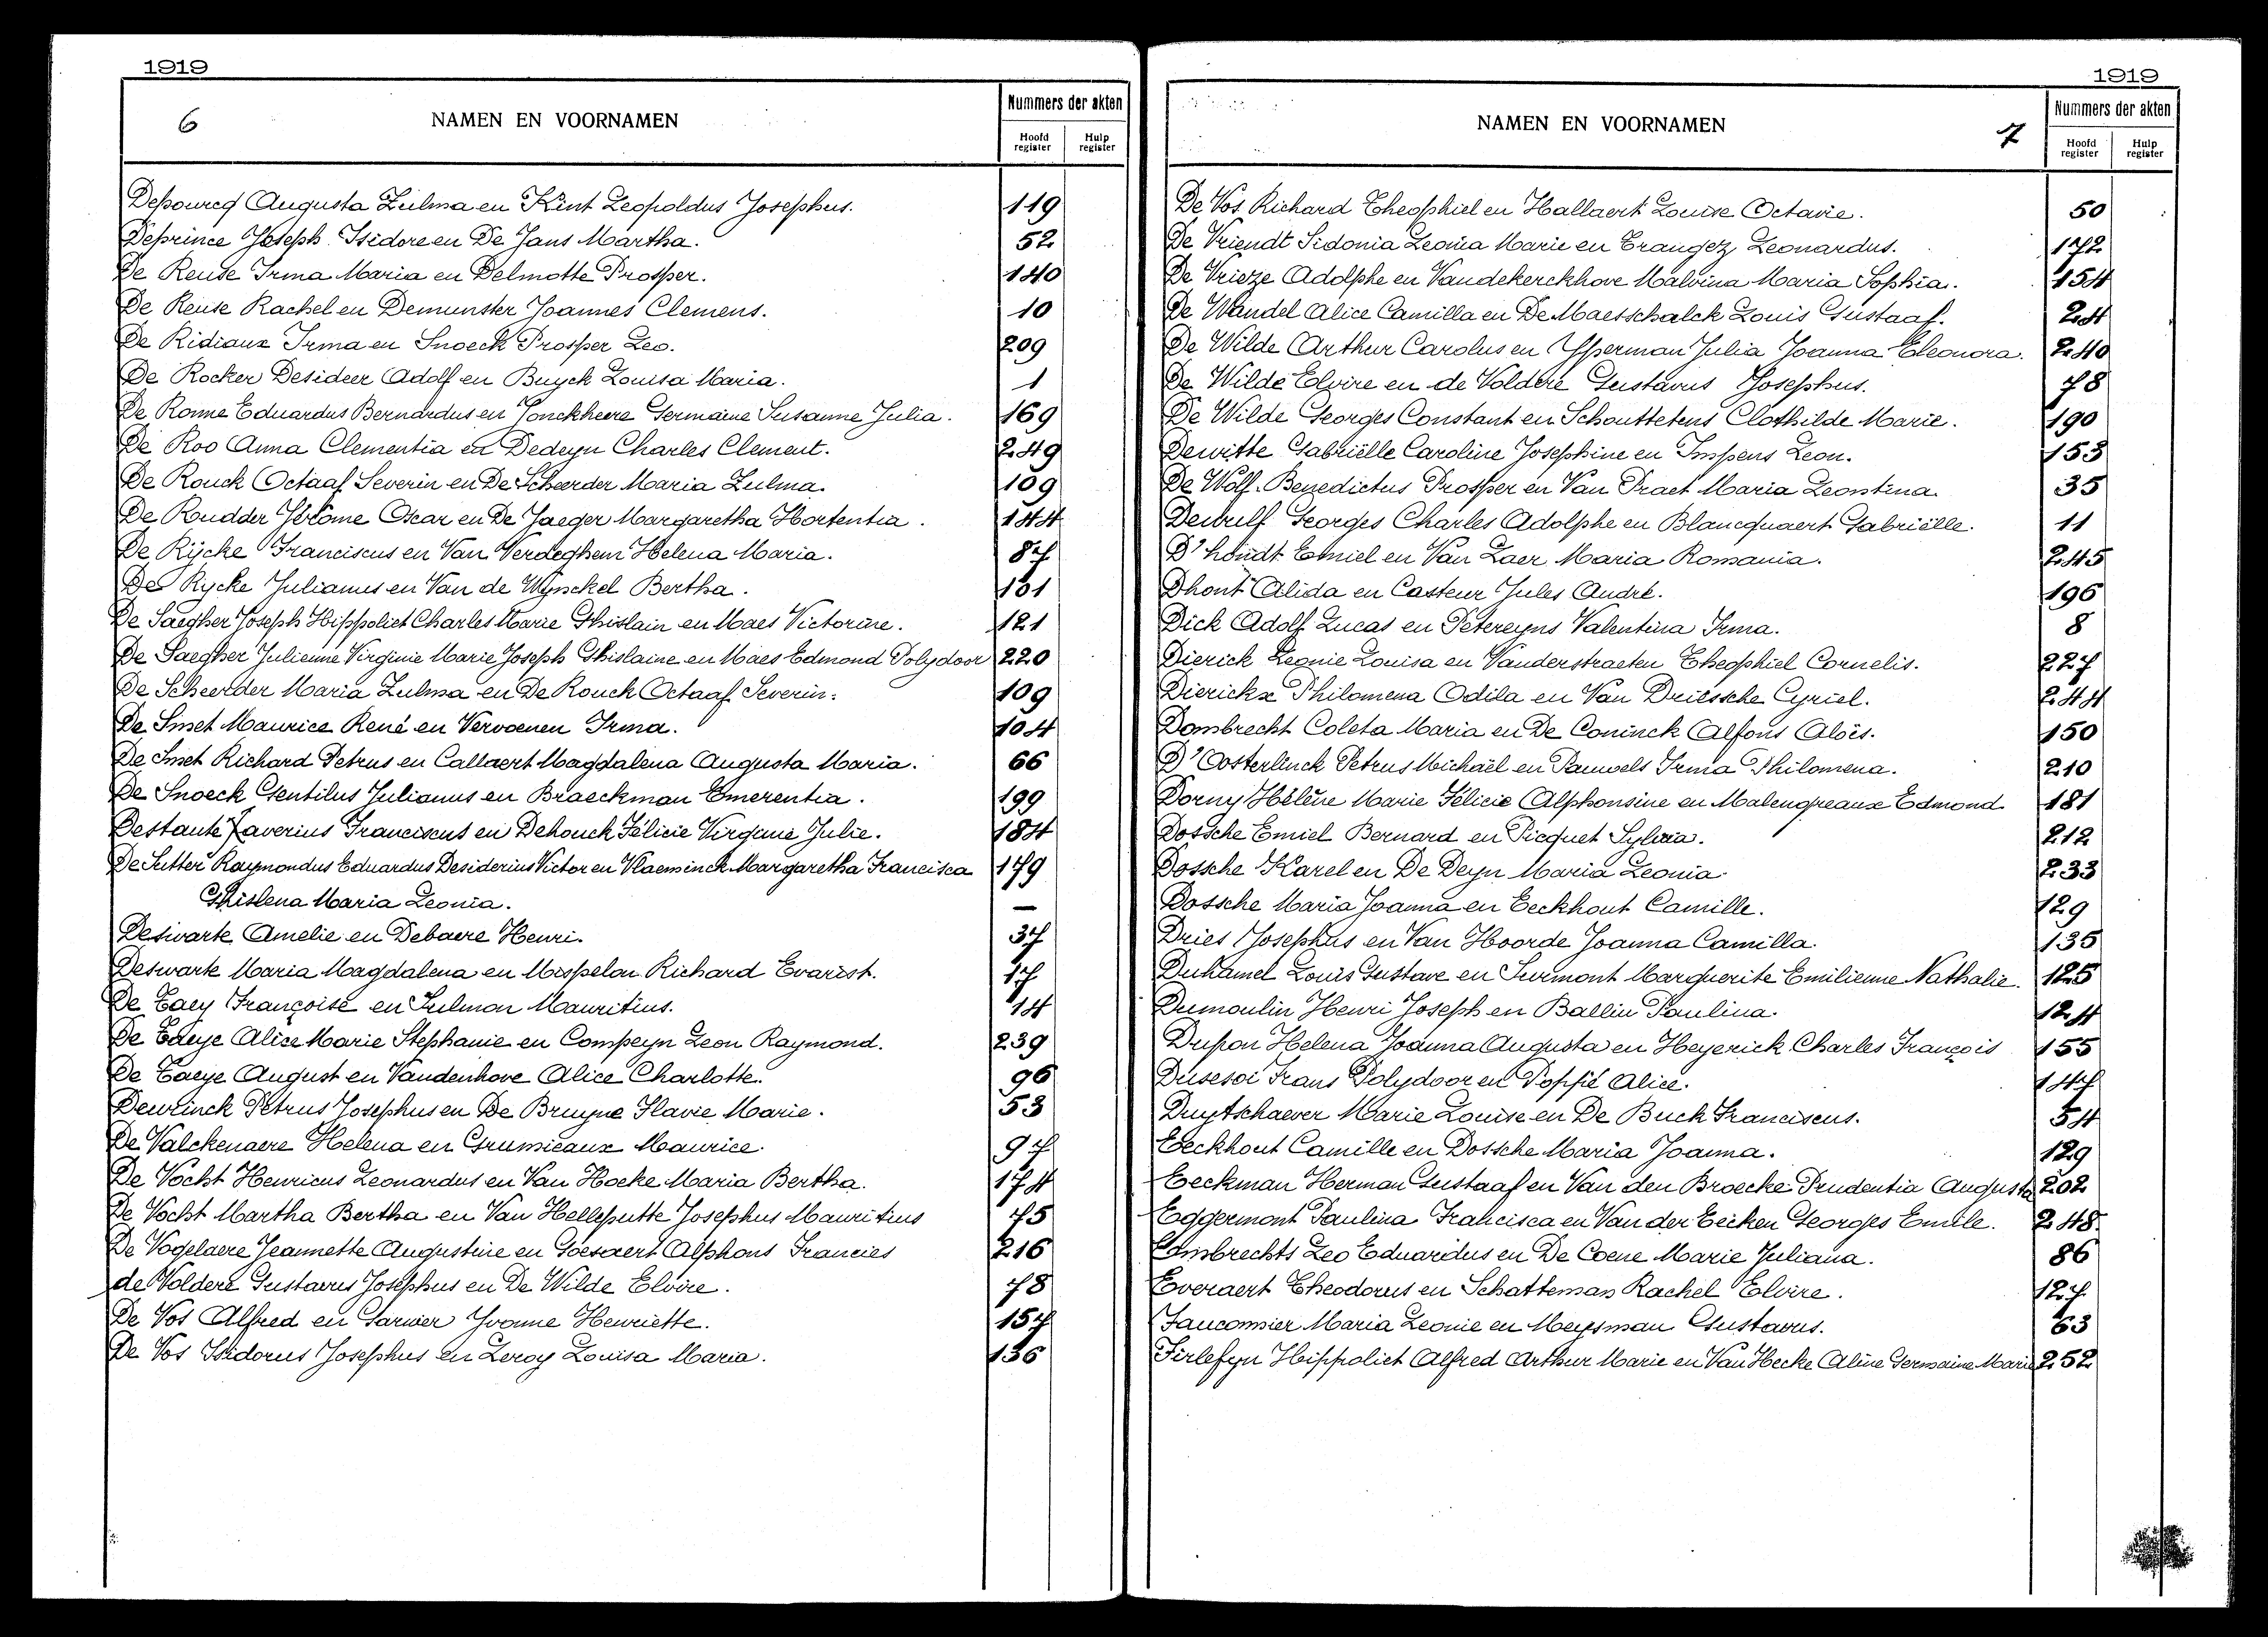 1919
6
NAMEN EN VOORNAMEN
Nummers der akten
Hoofd register
Hulp register
Depourcq Augusta Zulma en Kint Leopoldus Josephus. 119
Deprince Joseph Isidore en De Jans Martha. 52
De Reuse Irma Maria en Delmotte Prosper. 140
De Reuse Rachel en Demunster Joannes Clemens. 10
De Ridiaux Irma en Snoeck Prosper Leo. 209
De Rocker Desideer Adolf en Buyck Louisa Maria. 1
De Ronne Eduardus Bernardus en Jonckheere Germaine Susanne Julia. 169
De Roo Anna Clementia en Dedeyn Charles Clement. 249
De Rouck Octaaf Severin en De Scheerder Maria Zulma. 109
De Rudder Jérôme Oscar en De Jaeger Margaretha Hortentia. 144
De Rijcke Franciscus en Van Verdeghem Helena Maria. 87
De Rycke Julianus en Van de Wynckel Bertha. 131
De Saegher Joseph Hippoliet Charles Marie Ghislain en Maes Victorine. 121
De Saegher Julienne Virginie Marie Joseph Ghislaine en Maes Edmond Polydoor 220
De Scheerder Maria Zulma en De Rouck Octaaf Severin. 109
De Smet Maurice René en Vervaenen Irma. 104
De Smet Richard Petrus en Callaert Magdalena Augusta Maria. 66
De Snoeck Gentilus Julianus en Braeckman Emerentia. 199
Destante Xaverius Franciscus en Dehouck Félicie Virginie Julie. 184
De Sutter Raymondus Eduardus Desiderius Victor en Vlaeminck Margaretha Francisca 179
Ghislena Maria Leonia. —
Deswarte Amelie en Debaere Henri. 37
Deswarte Maria Magdalena en Mispelon Richard Evarist. 17
De Taey Françoise en Sulmon Mauritius. 14
De Taeye Alice Marie Stephanie en Compeyn Leon Raymond. 239
De Taeye August en Vandenhove Alice Charlotte. 96
Deurinck Petrus Josephus en De Bruyne Flavie Marie. 53
De Valckenaere Helena en Grumieaux Maurice. 97
De Vocht Henricus Leonardus en Van Hoeke Maria Bertha. 174
De Vocht Martha Bertha en Van Helleputte Josephus Mauritius 75
De Vogelaere Jeannette Augustine en Goesaert Alphons Francies 216
de Voldere Gustavus Josephus en De Wilde Elvire. 78
De Vos Alfred en Garnier Yvonne Henriëtte. 157
De Vos Isidorus Josephus en Leroy Louisa Maria. 136
1919
NAMEN EN VOORNAMEN
7
Nummers der akten
Hoofd register
Hulp register
De Vos Richard Theophiel en Hallaert Louise Octavie. 50
De Vriendt Sidonia Leonia Marie en Trangez Leonardus. 172
De Vrieze Adolphe en Vandekerckhove Malvina Maria Sophia. 154
De Wandel Alice Camilla en De Maesschalck Louis Gustaaf. 24
De Wilde Arthur Carolus en Ysperman Julia Joanna Eleonora. 240
De Wilde Elvire en de Voldere Gustavus Josephus. 78
De Wilde Georges Constant en Schouttetens Clothilde Marie. 190
Dewitte Gabriëlle Caroline Josephine en Impens Leon. 153
De Wolf Benedictus Prosper en Van Praet Maria Leontina. 35
Dewulf Georges Charles Adolphe en Blancquaert Gabriëlle. 11
D'hondt Emiel en Van Laer Maria Romania. 245
Dhont Alida en Casteur Jules André. 196
Dick Adolf Lucas en Petereyns Valentina Irma. 8
Dierick Leonie Louisa en Vanderstraeten Theophiel Cornelis. 227
Dierickx Philomena Odila en Van Driessche Cyriel. 244
Dombrecht Coleta Maria en De Coninck Alfons Aloïs. 150
D'Oosterlinck Petrus Michaël en Pauwels Irma Philomena. 210
Dorny Hélène Marie Félicie Alphonsine en Malengreaux Edmond 181
Dossche Emiel Bernard en Picquet Sylvia. 212
Dossche Karel en De Deyn Maria Leonia 233
Dossche Maria Joanna en Eeckhout Camille. 129
Dries Josephus en Van Hoorde Joanna Camilla. 135
Duhamel Louis Gustave en Surmont Marguerite Emilienne Nathalie. 125
Dumoulin Henri Joseph en Ballin Paulina. 124
Dupon Helena Joanna Augusta en Heyerick Charles François 155
Dusesoi Frans Polydoor en Poppé Alice. 147
Duytschaever Marie Louise en De Buck Franciscus. 54
Eeckhout Camille en Dossche Maria Joanna. 129
Eeckman Herman Gustaaf en Van den Broecke Prudentia Augusta 202
Eggermont Paulina Francisca en Van der Eecken Georges Emile. 248
Eombrechts Leo Eduardus en De Coene Marie Juliana. 86
Everaert Theodorus en Schatteman Rachel Elvire. 127
Fauconnier Maria Leonie en Meysman Gustavus. 63
Firlefyn Hippoliet Alfred Arthur Marie en Van Hecke Aline Germaine Marie 252